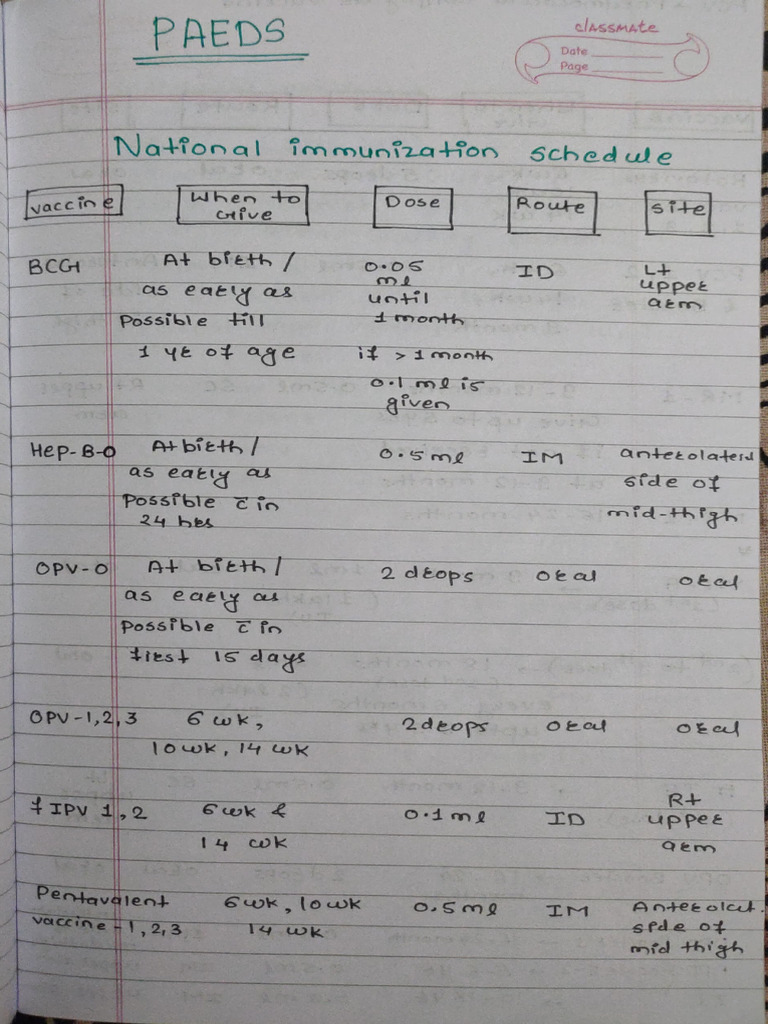 PAEDS
classmate
Date
Page
National immunization schedule
vaccine When to Give Dose Route Site
BCG At birth / 0.05 ID Lt
as early as ml upper
until arm
Possible till 1 month
1 yr of age if > 1 month
0.1 ml is
given
Hep-B-0 At birth / 0.5 ml IM anterolateral
as early as side of
Possible c̄ in mid-thigh
24 hrs
OPV-0 At birth / 2 drops Oral Oral
as early as
Possible c̄ in
first 15 days
OPV-1,2,3 6 wk, 2 drops Oral Oral
10 wk, 14 wk
Rt
f IPV 1,2 6 wk & 0.1 ml ID upper
14 wk arm
Pentavalent 6 wk, 10 wk 0.5 ml IM Anterolat.
vaccine - 1,2,3 14 wk side of
mid thigh